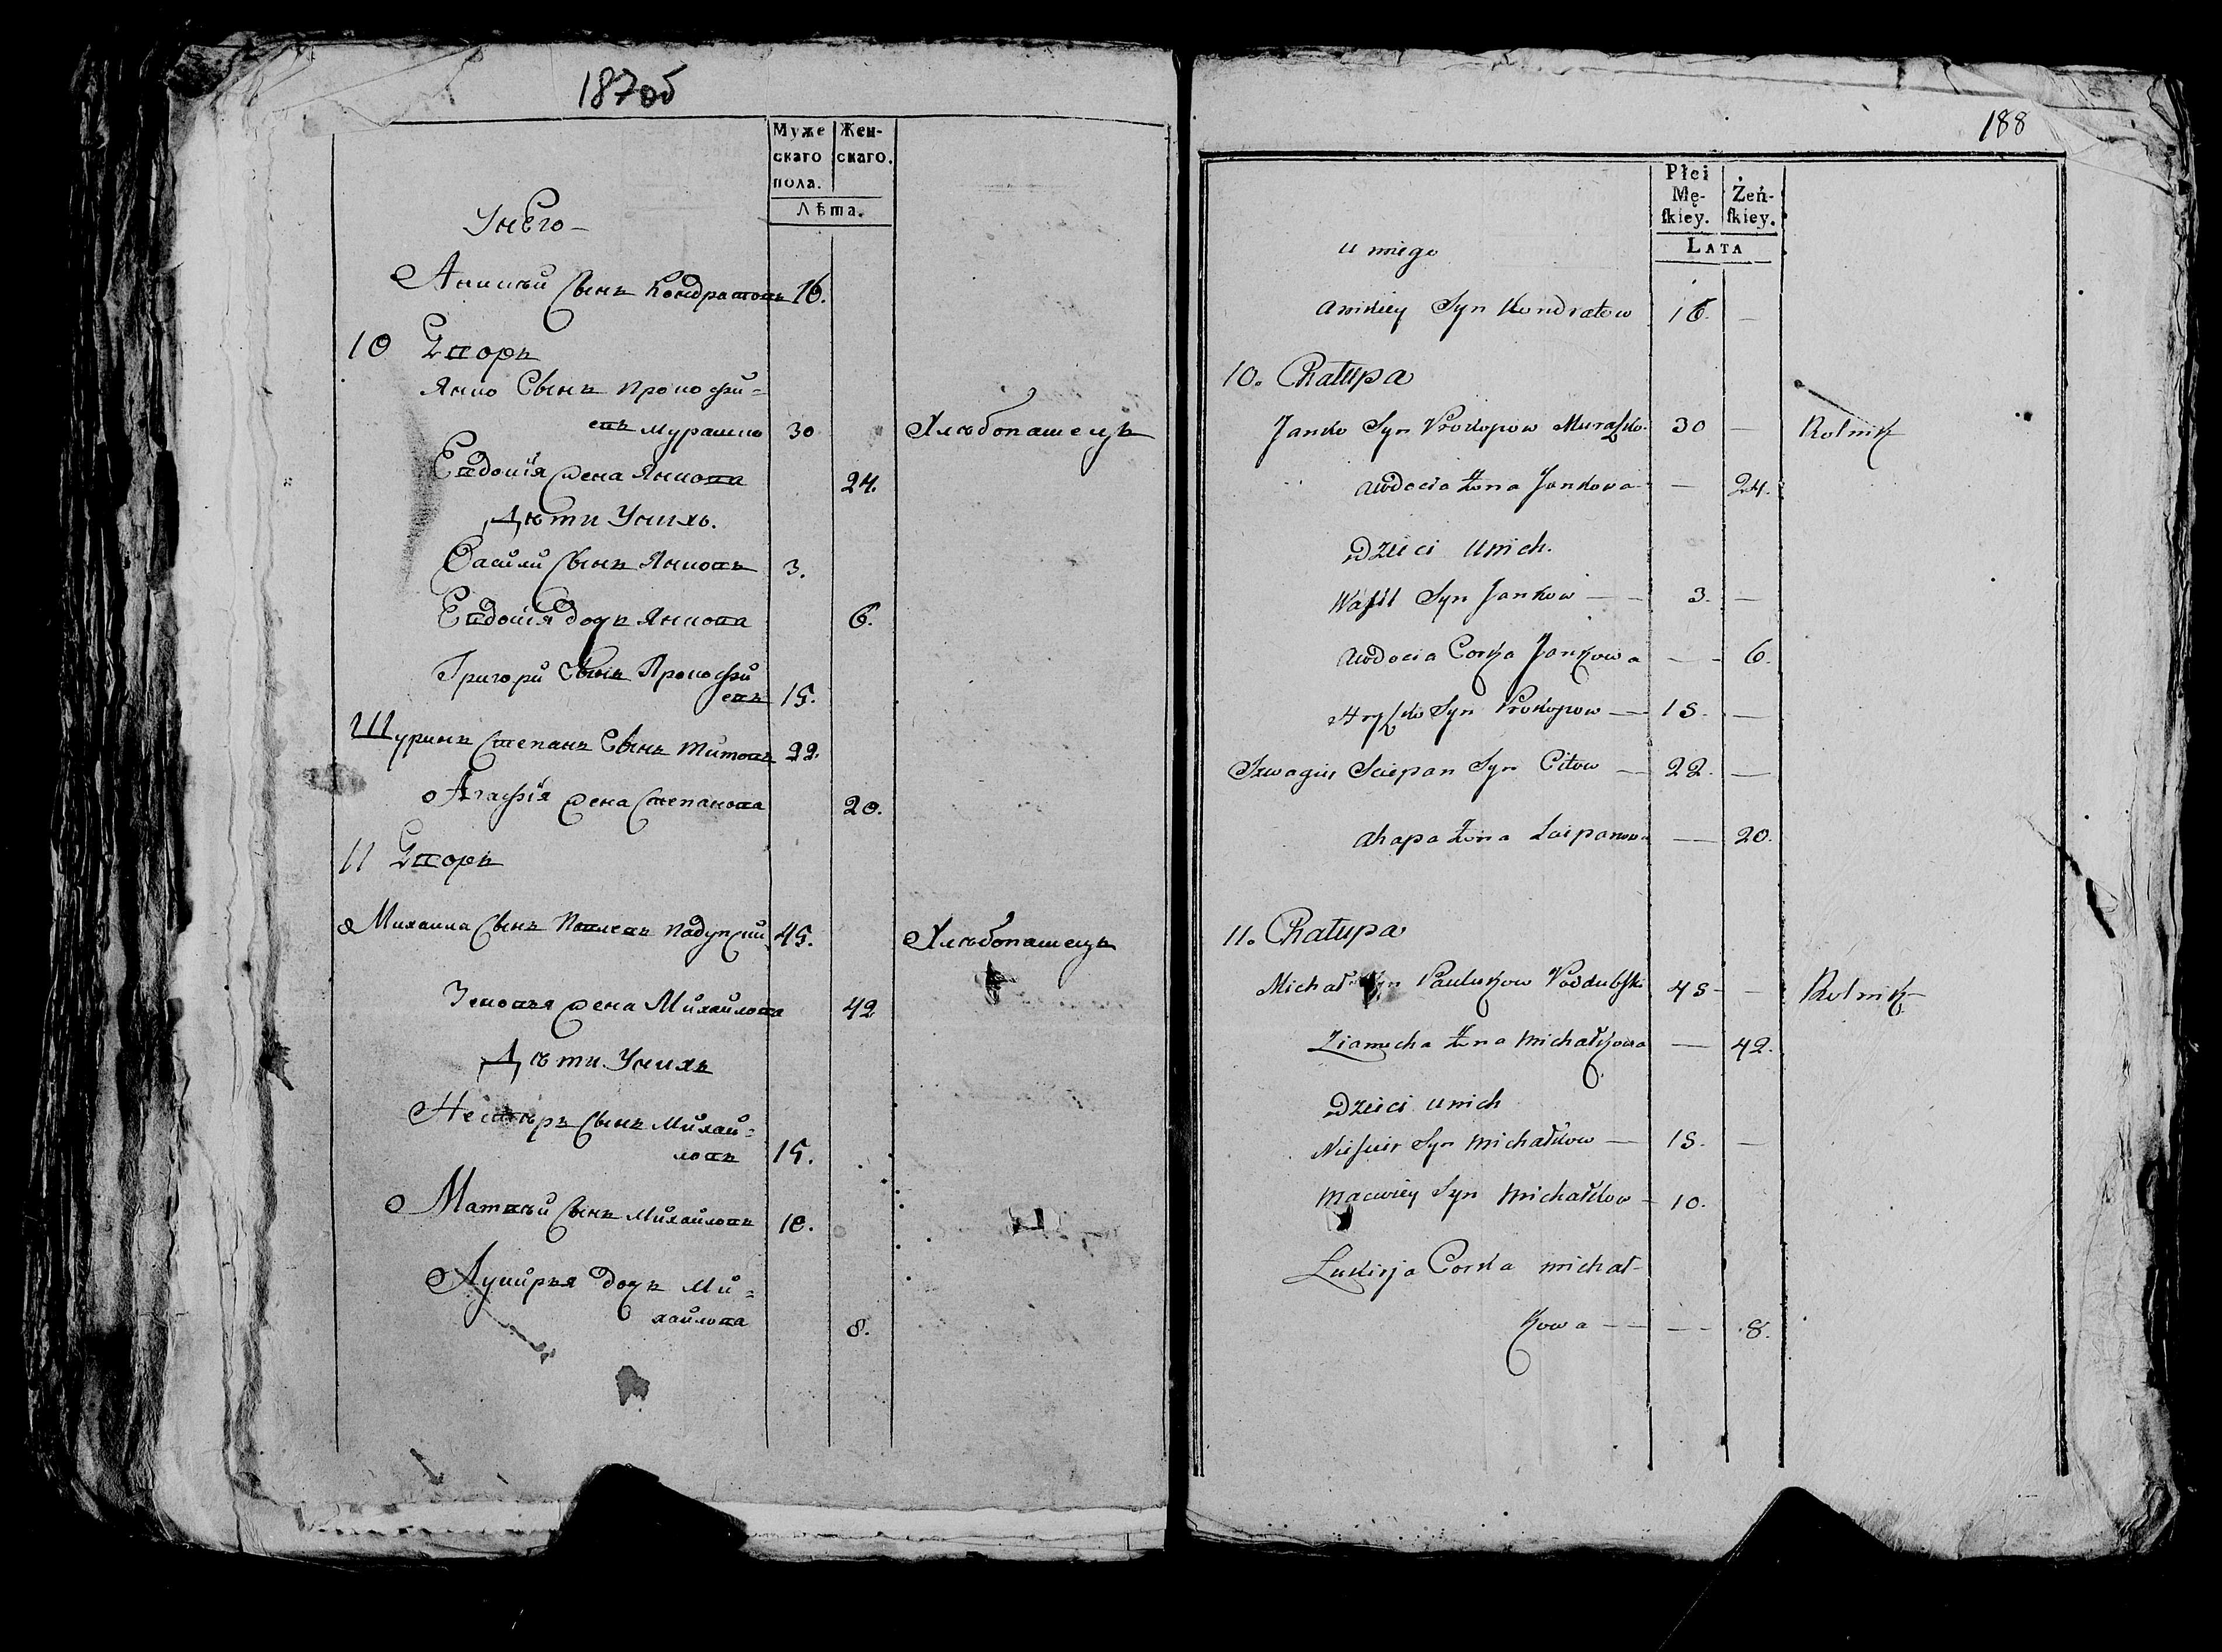 187об
Муже Жен-
скаго скаго.
пола.
Лѣта.
У него
Аникѣй Сынъ Кондратовъ 16.
10 Дворъ
Янко Сынъ Прокофи=
евъ Мурашко 30 Хлѣбопашецъ
Евдокія жена Янкова 24.
Дѣти У нихъ.
Васили Сынъ Янковъ 3.
Евдокія дочь Янкова 6.
Григори Сынъ Прокофи
евъ 15.
Шуринъ Степанъ Сынъ Титовъ 22.
Агафія жена Степанова 20.
11 Дворъ
Михаила Сынъ Павловъ 45. Хлѣбопашецъ
жена Михайлова 42
Дѣти У нихъ
Сынъ Михай=
ловъ 15.
Матвѣй Сынъ Михайловъ 10.
Лукирья дочь Ми=
хайлова 8.
188
Płci
Mę- Żeń-
skiey. skiey.
LATA
u niego
Anikiey Syn Kondratow 16. —
10. Chałupa
Janko Syn Prokopow Muraszko 30 — Rolnik
Awdocia Żona Jankowa — 24.
Dzieci u nich.
Wasil Syn Jankow — 3. —
Awdocia Corka Jankowa — 6.
Hryszko Syn Prokopow — 15. —
Szwagier Sciepan Syn Citow — 22. —
Ahapa Żona — 20.
11. Chałupa
Michał Syn Paulukow Poddubski 45 — Rolnik
Żona Michałkowa — 42.
Dzieci u nich
Syn Michałkow — 15. —
Maciwiey Syn Michałkow — 10.
Lukirja Corka Michał-
kowa — — 8.